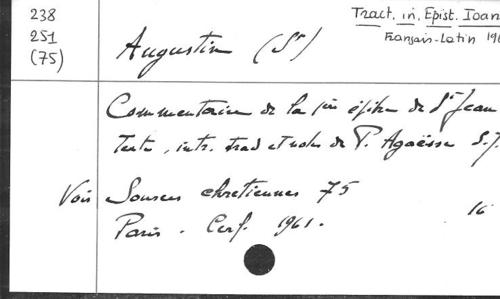 238
251
(75)
Tract. in. Epist. Ioan
Français-Latin 196
Augustin (St)
Commentaire de la 1ère épître de St Jean
Texte, intr. trad et notes de P. Agaësse S.J.
Voir Sources chretiennes 75
Paris. Cerf. 1961.
16